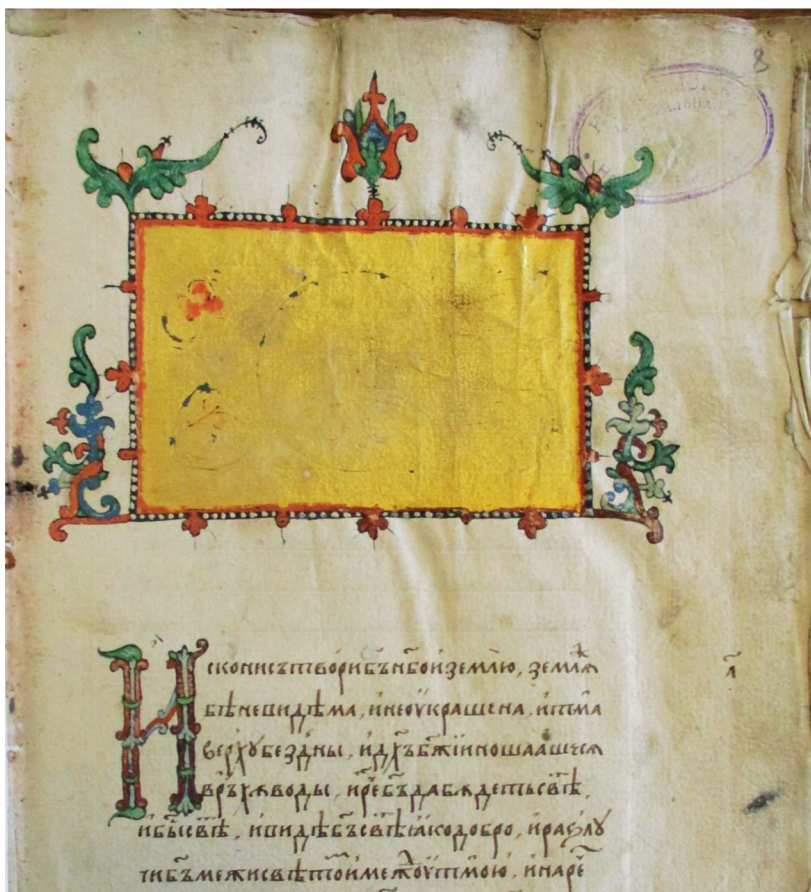 8
Искони сътвори бъ҃ нб҃о и землю, земля҃
бѣ невидѣма, и неѹкрашена, и тма
верхѹ бездны, и дх҃ъ бж҃іи ношаашеся
връхѫ воды, и ре҃ бъ҃ да бѫдеть свѣ҃,
и бы҃ свѣ҃, и видѣ бъ҃ свѣ҃ ꙗко добро, и разлѹ
чи бъ҃ межи свѣто҃ и межоѹ тмою, и наре҃
а҃